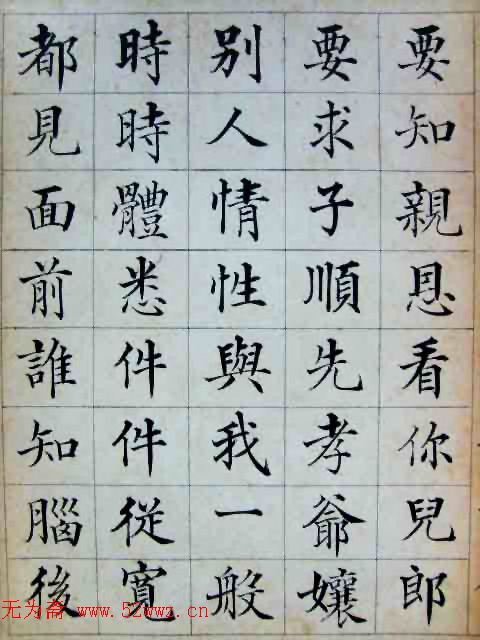 要知親恩看你兒郎
要求子順先孝爺孃
別人情性與我一般
時時體悉件件從寬
都見面前誰知腦後
无为斋 www.52wwz.cn